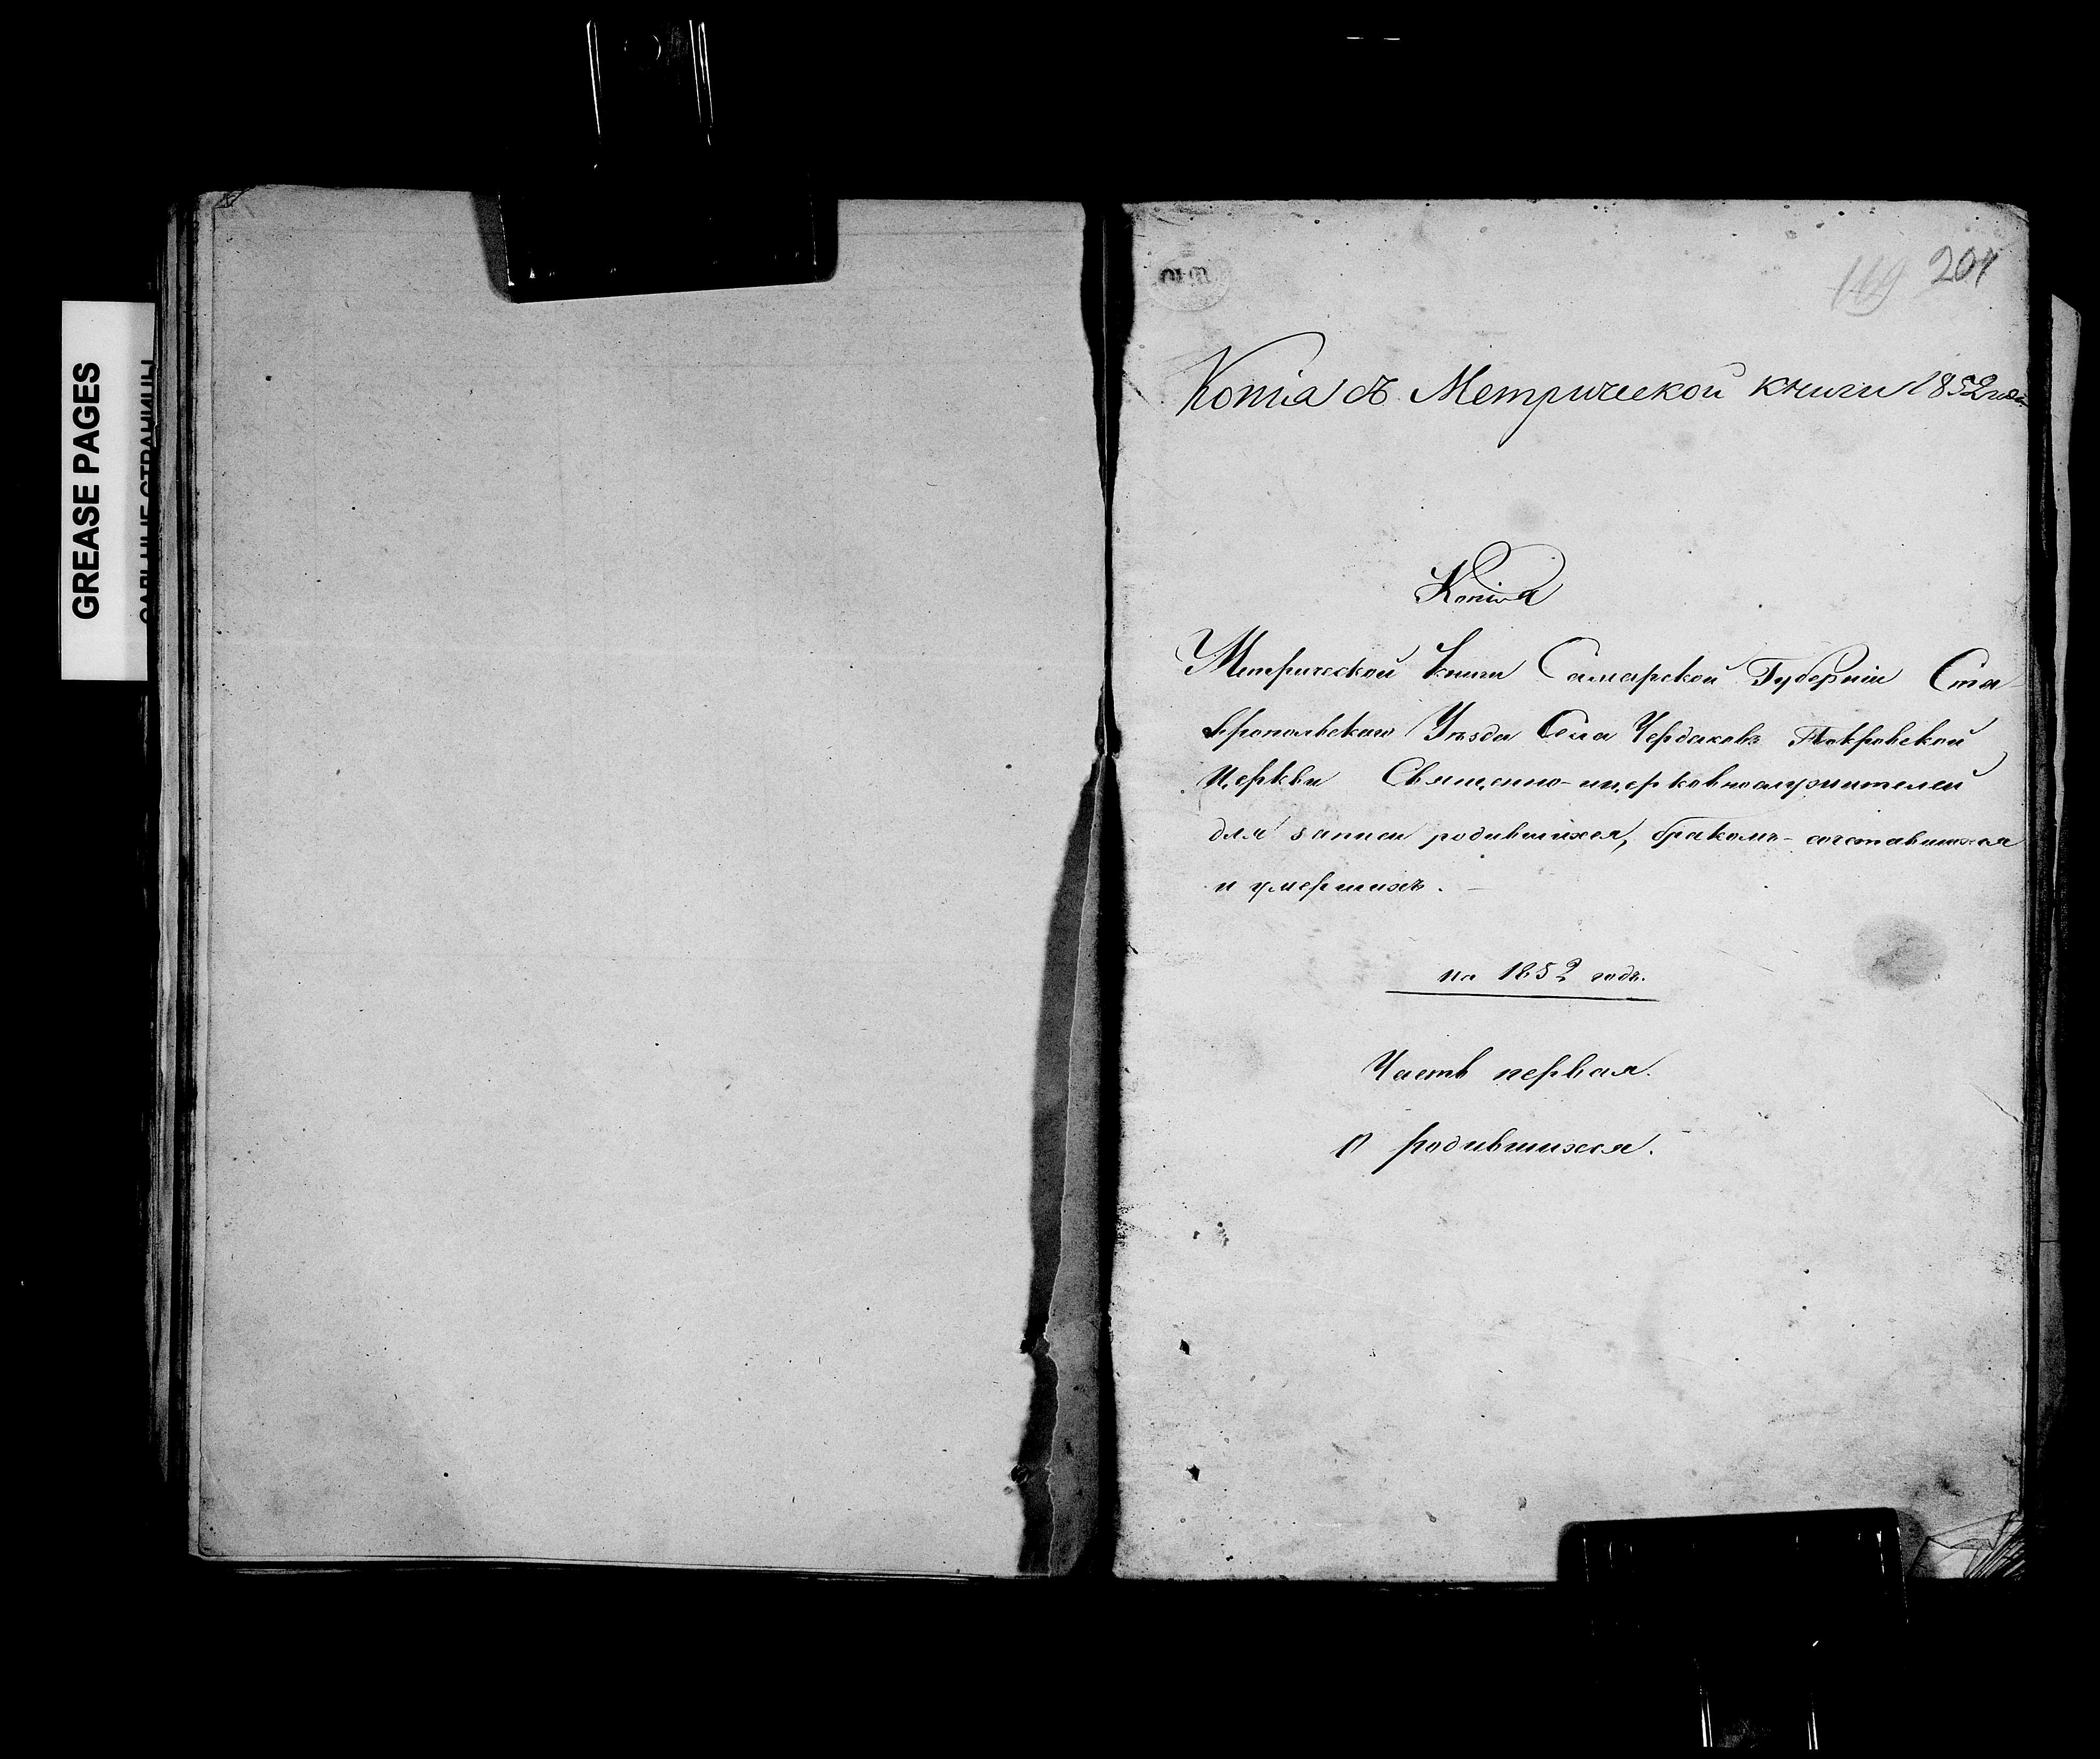 GREASE PAGES
САЛЬНЫЕ СТРАНИЦЫ
169 201
Копія съ Метрической книги 1852 года
Копія
Метрической книги Самарской Губерніи Ста-
вропольскаго Уѣзда Села Чердаковъ Покровской
Церкви Священно-ицерковнослужителей
для записи родившихся, бракомъ-сочетавшихся
и умершихъ.
на 1852 годъ.
Часть первая.
О родившихся.